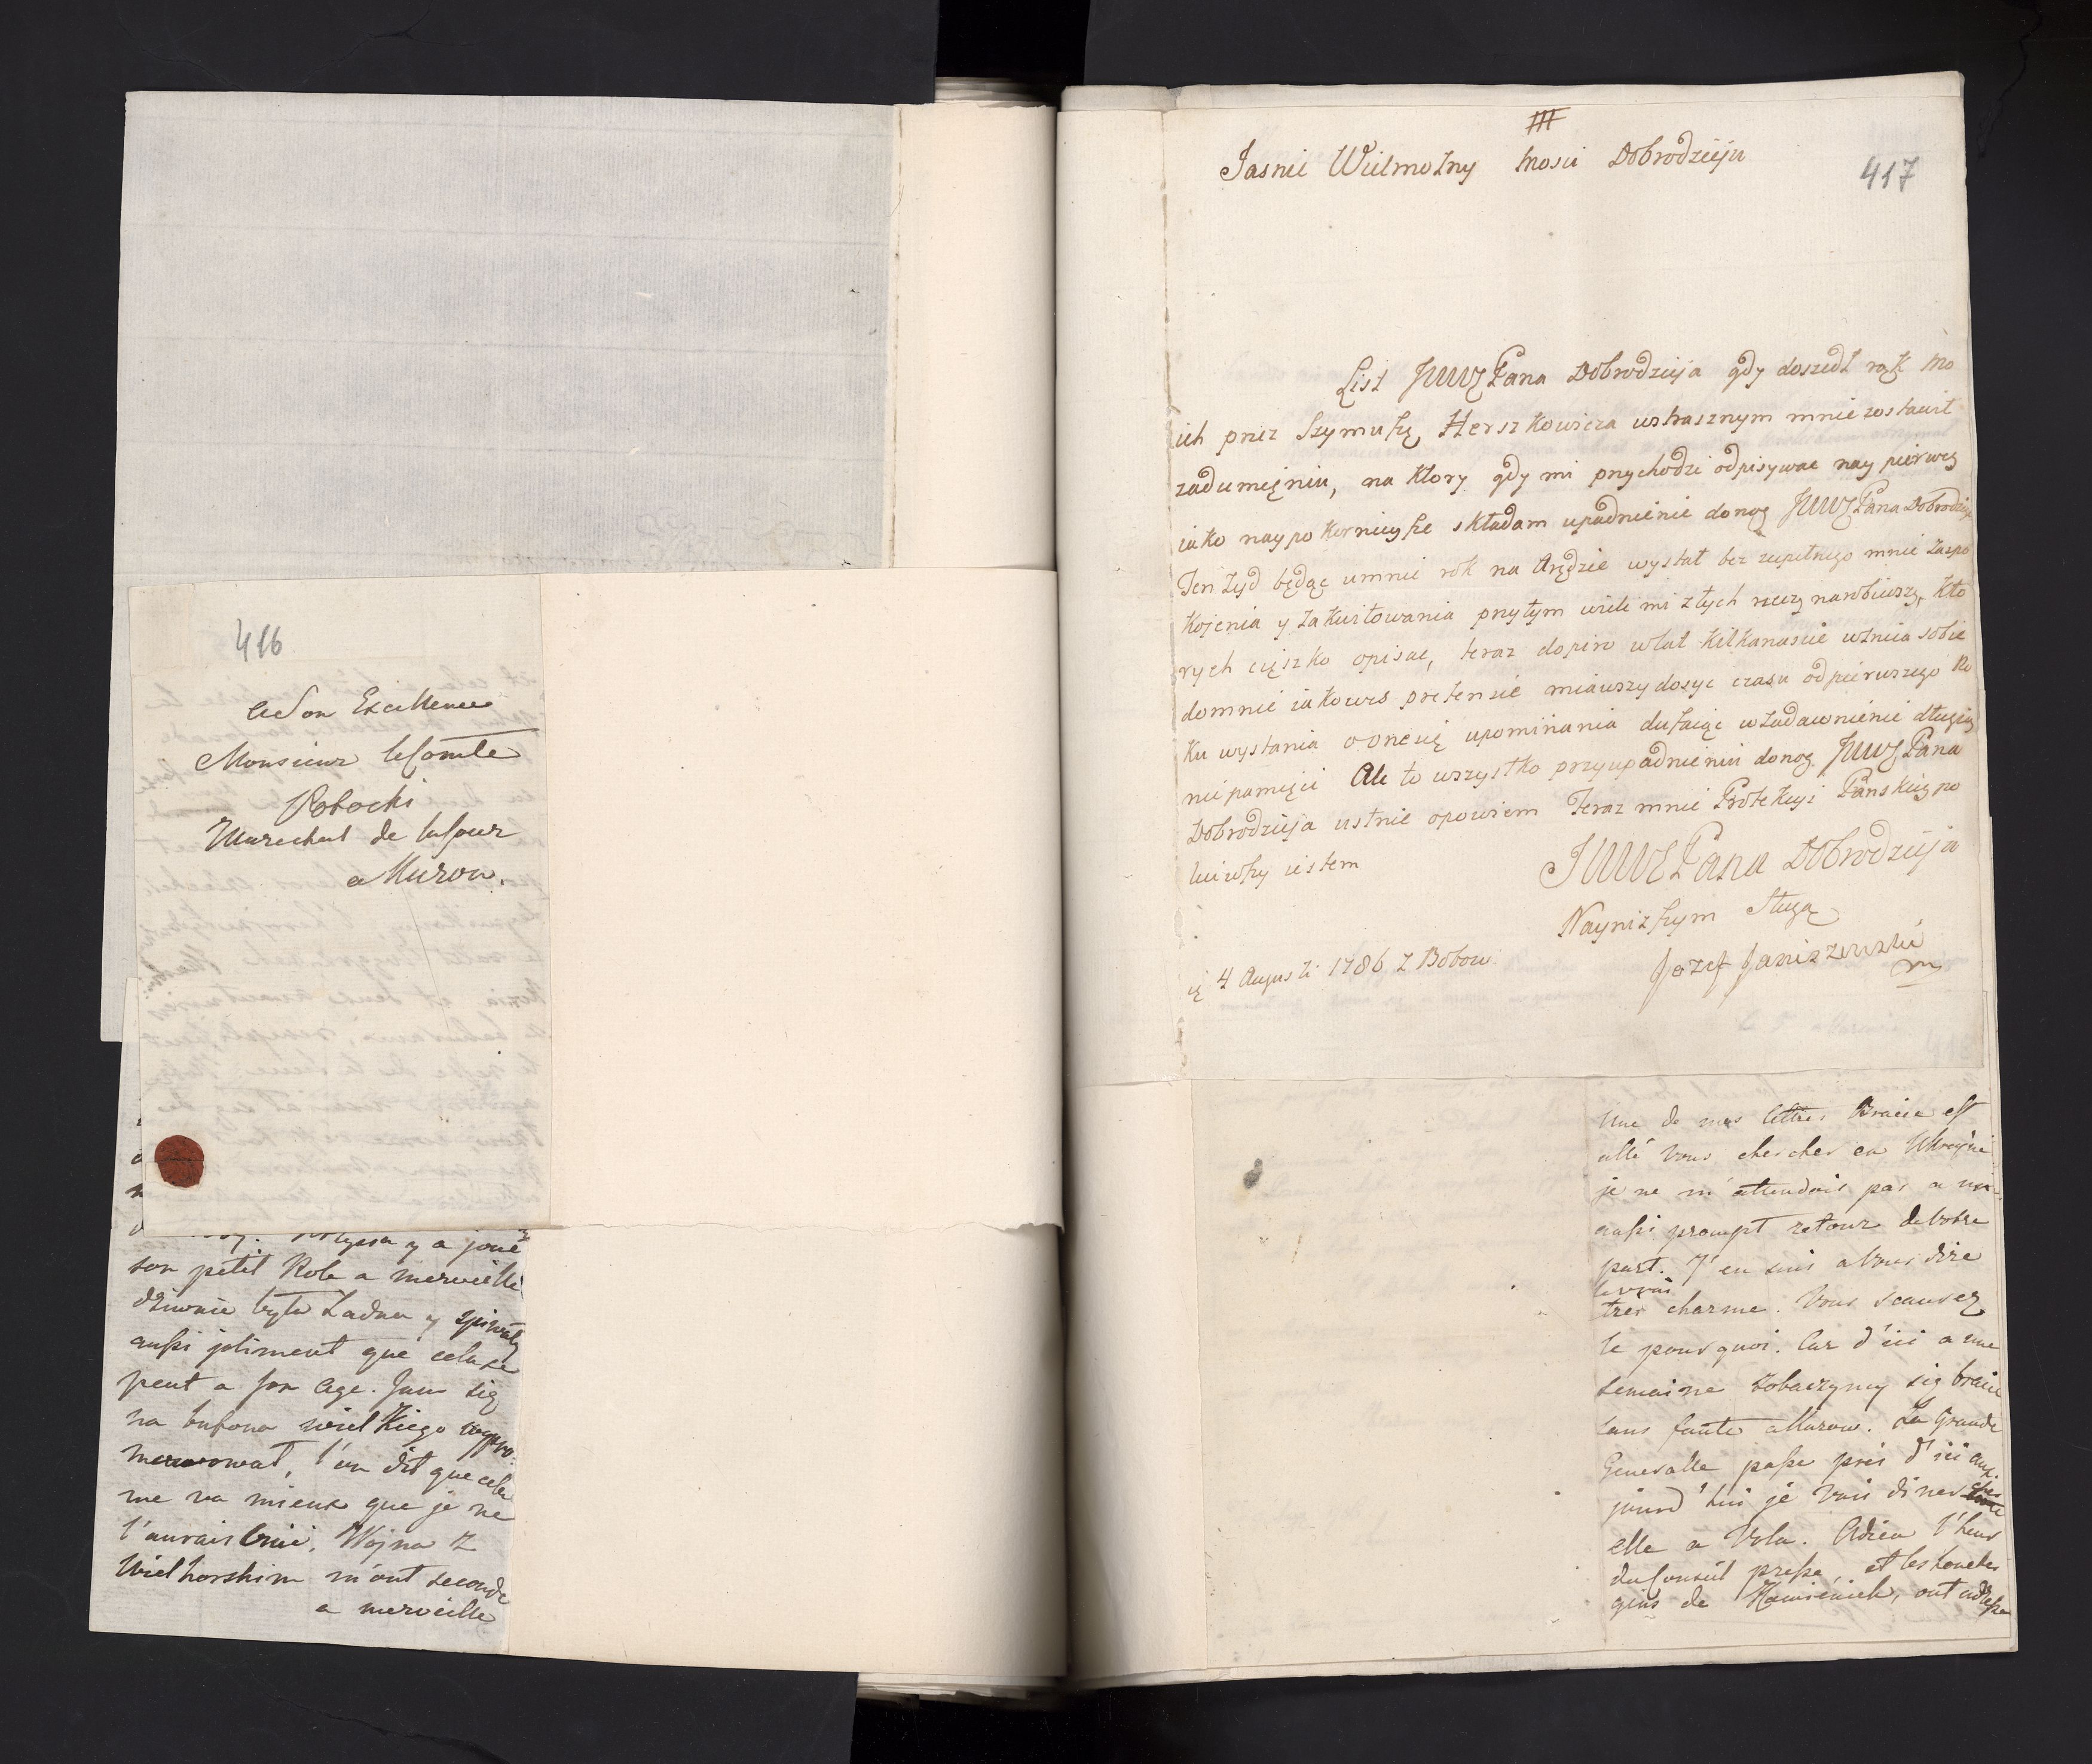 416
A Son Excellence
Monsieur le Comte
Potocki
Marechal de la Cour
a Kurow.
y a joué
son petit Role a merveille
dziwnie była Ładna y spiwała
aussi joliment que cela se
peut a son age. Jam się
na bufona wielkiego wypro-
mowował, l'on dit que cela
me va mieux que je ne
l'aurais crue. Wojna Z
Wielhorskim m'ont secondé
a merveille
Jasnie Wielmożny Mosci Dobrodzieju
417
List JWWPana Dobrodzieja gdy doszedł rąk mo
ich przez Szymuszę Herszkowicza wstrasznym mnie zostawił
zadumięniu, na ktory gdy mi przychodzi odpisywac nay pierwey
iako naypokornieysze składam upadnienie donog JWWPana Dobrodzieja
Ten żyd będąc umnie rok na Arędzie wysłał bez zupełnego mnie zaspo
kojenia y zakwitowania przytym wiele mi złych rzeczy narobiwszy, kto
rych cięszko opisac, teraz dopiro wlat kilkanascie wznica sobie
domnie iakowes pretensie miawszy dosyc czasu odpierwszego Ro
ku wysłania oonesię upominania dufaiąc wzadawnienie długiey
niepamięci Ale to wszystko przyupadnieniu donog JWWPana
Dobrodzieja ustnie opowiem Teraz mnie Protekcyi Panskiey po
leciwszy iestem
JWWPana Dobrodzieja
Nayniższym Sługą
Jozef Janiszewski
4 Augusti 1786 z Bobow
Une de mes lettres Bracie est
allé vous chercher en Ukrayne
je ne m'attendais pas a un
aussi prompt retour de votre
part. J'en suis a vous dire
le vrai
tres charmé. Vous scavez
le pourquoi. Car d'ici a une
semaine zobaczymy się bracie
sans faute a Kurow. La Grande
Generalle passe près d'ici auj-
jourd'hui je vais diner chez
elle a Vola. Adieu l'heure
du Conseil presse, et les
de Kamieniek, ont